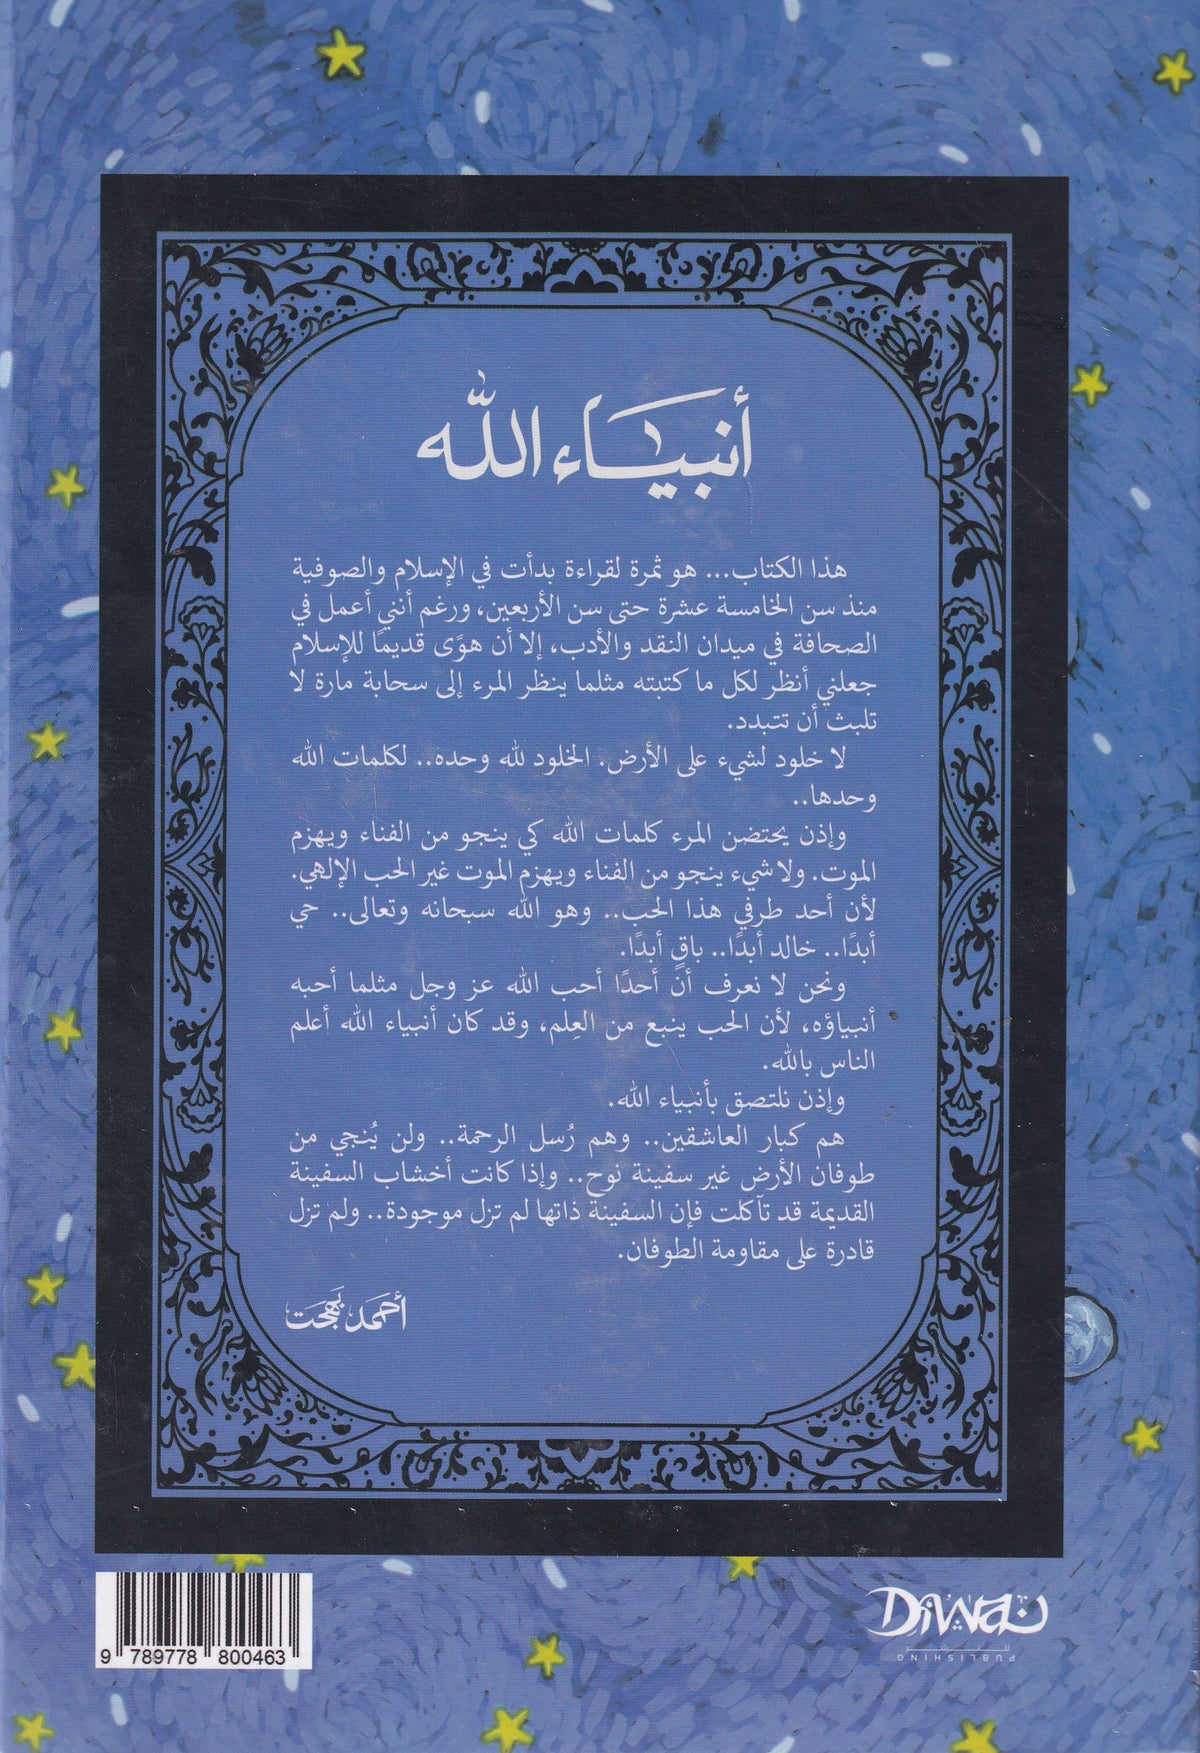 أنبياء الله
هذا الكتاب... هو ثمرة لقراءة بدأت في الإسلام والصوفية
منذ سن الخامسة عشرة حتى سن الأربعين، ورغم أنني أعمل في
الصحافة في ميدان النقد والأدب، إلا أن هوًى قديمًا للإسلام
جعلني أنظر لكل ما كتبته مثلما ينظر المرء إلى سحابة مارة لا
تلبث أن تتبدد.
لا خلود لشيء على الأرض. الخلود لله وحده.. لكلمات الله
وحدها..
وإذن يحتضن المرء كلمات الله كي ينجو من الفناء ويهزم
الموت. ولا شيء ينجو من الفناء ويهزم الموت غير الحب الإلهي.
لأن أحد طرفي هذا الحب.. وهو الله سبحانه وتعالى.. حي
أبدًا.. خالد أبدًا.. باقٍ أبدًا.
ونحن لا نعرف أن أحدًا أحب الله عز وجل مثلما أحبه
أنبياؤه، لأن الحب ينبع من العِلم، وقد كان أنبياء الله أعلم
الناس بالله.
وإذن نلتصق بأنبياء الله.
هم كبار العاشقين.. وهم رُسل الرحمة.. ولن يُنجي من
طوفان الأرض غير سفينة نوح.. وإذا كانت أخشاب السفينة
القديمة قد تآكلت فإن السفينة ذاتها لم تزل موجودة.. ولم تزل
قادرة على مقاومة الطوفان.
أحمد بهجت
Diwan
للنشر
PUBLISHING
9 789778 800463